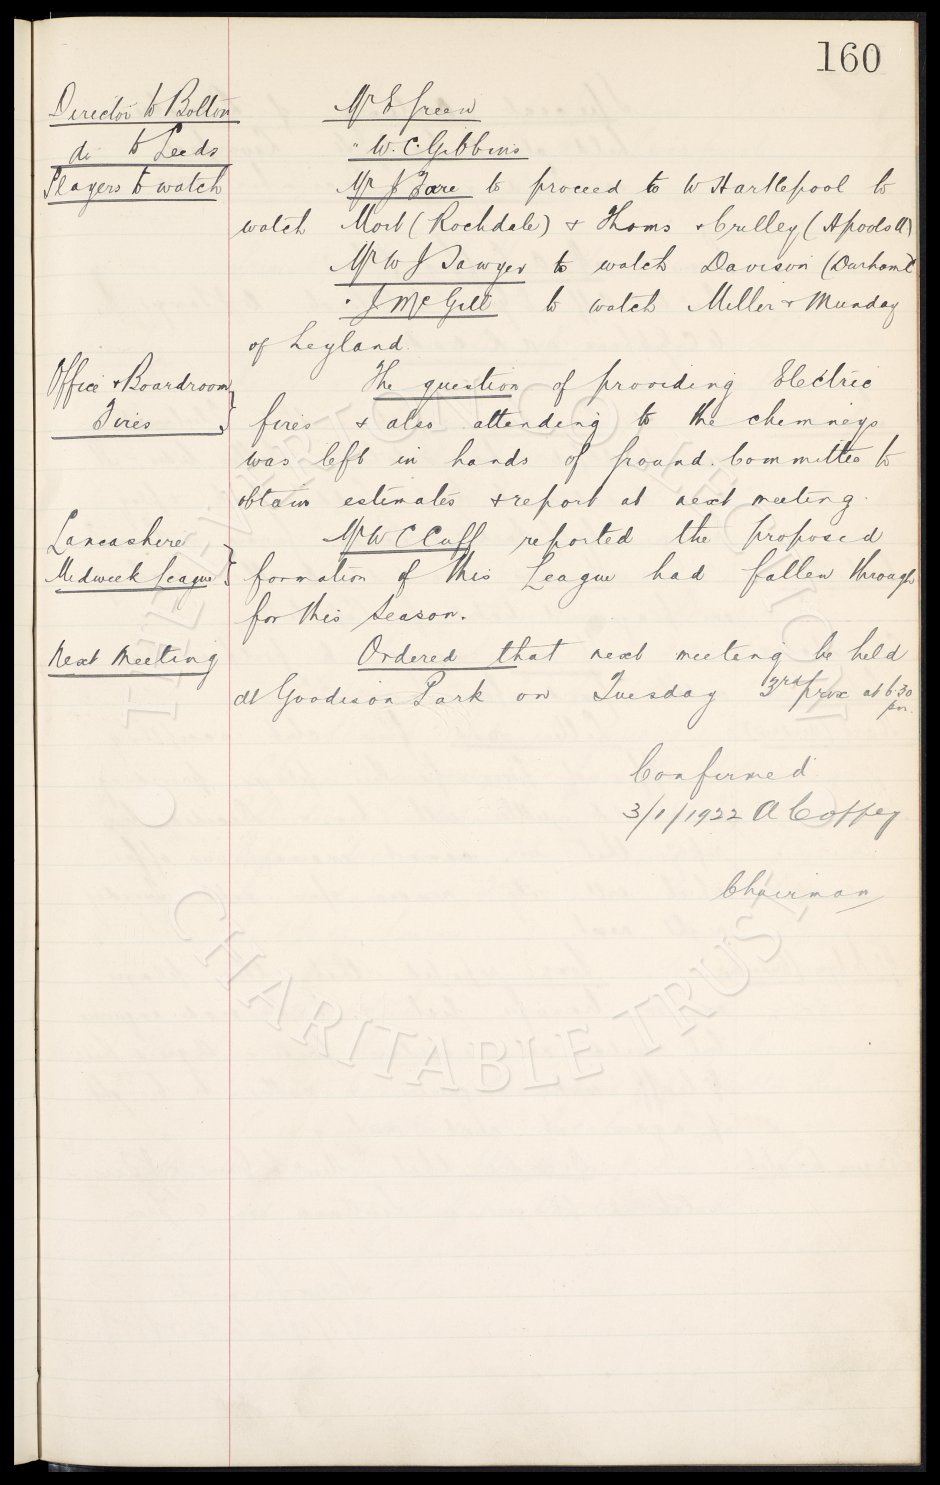 160
Director to Bolton Mr E Green
do to Leeds " W. C. Gibbins
Players to watch Mr J Fare to proceed to W Hartlepool to
watch Mort (Rochdale) & Thoms & Crilley (Apools
Mr W J Sawyer to watch Davison (Durham C
" J McGill to watch Miller & Munday
of Leyland.
Office & Boardroom The question of providing Electric
Fires fires & also attending to the chimneys
was left in hands of Ground. Committee to
obtain estimates & report at next meeting.
Lancashire Mr W C Cuff reported the proposed
Midweek League formation of this League had fallen through
for this season.
Next Meeting Ordered that next meeting be held
at Goodison Park on Tuesday 3rd prox at 6.30
pm.
Confirmed
3/1/1922 A Coffey
Chairman
THE EVERTON COLLECTION
CHARITABLE TRUST